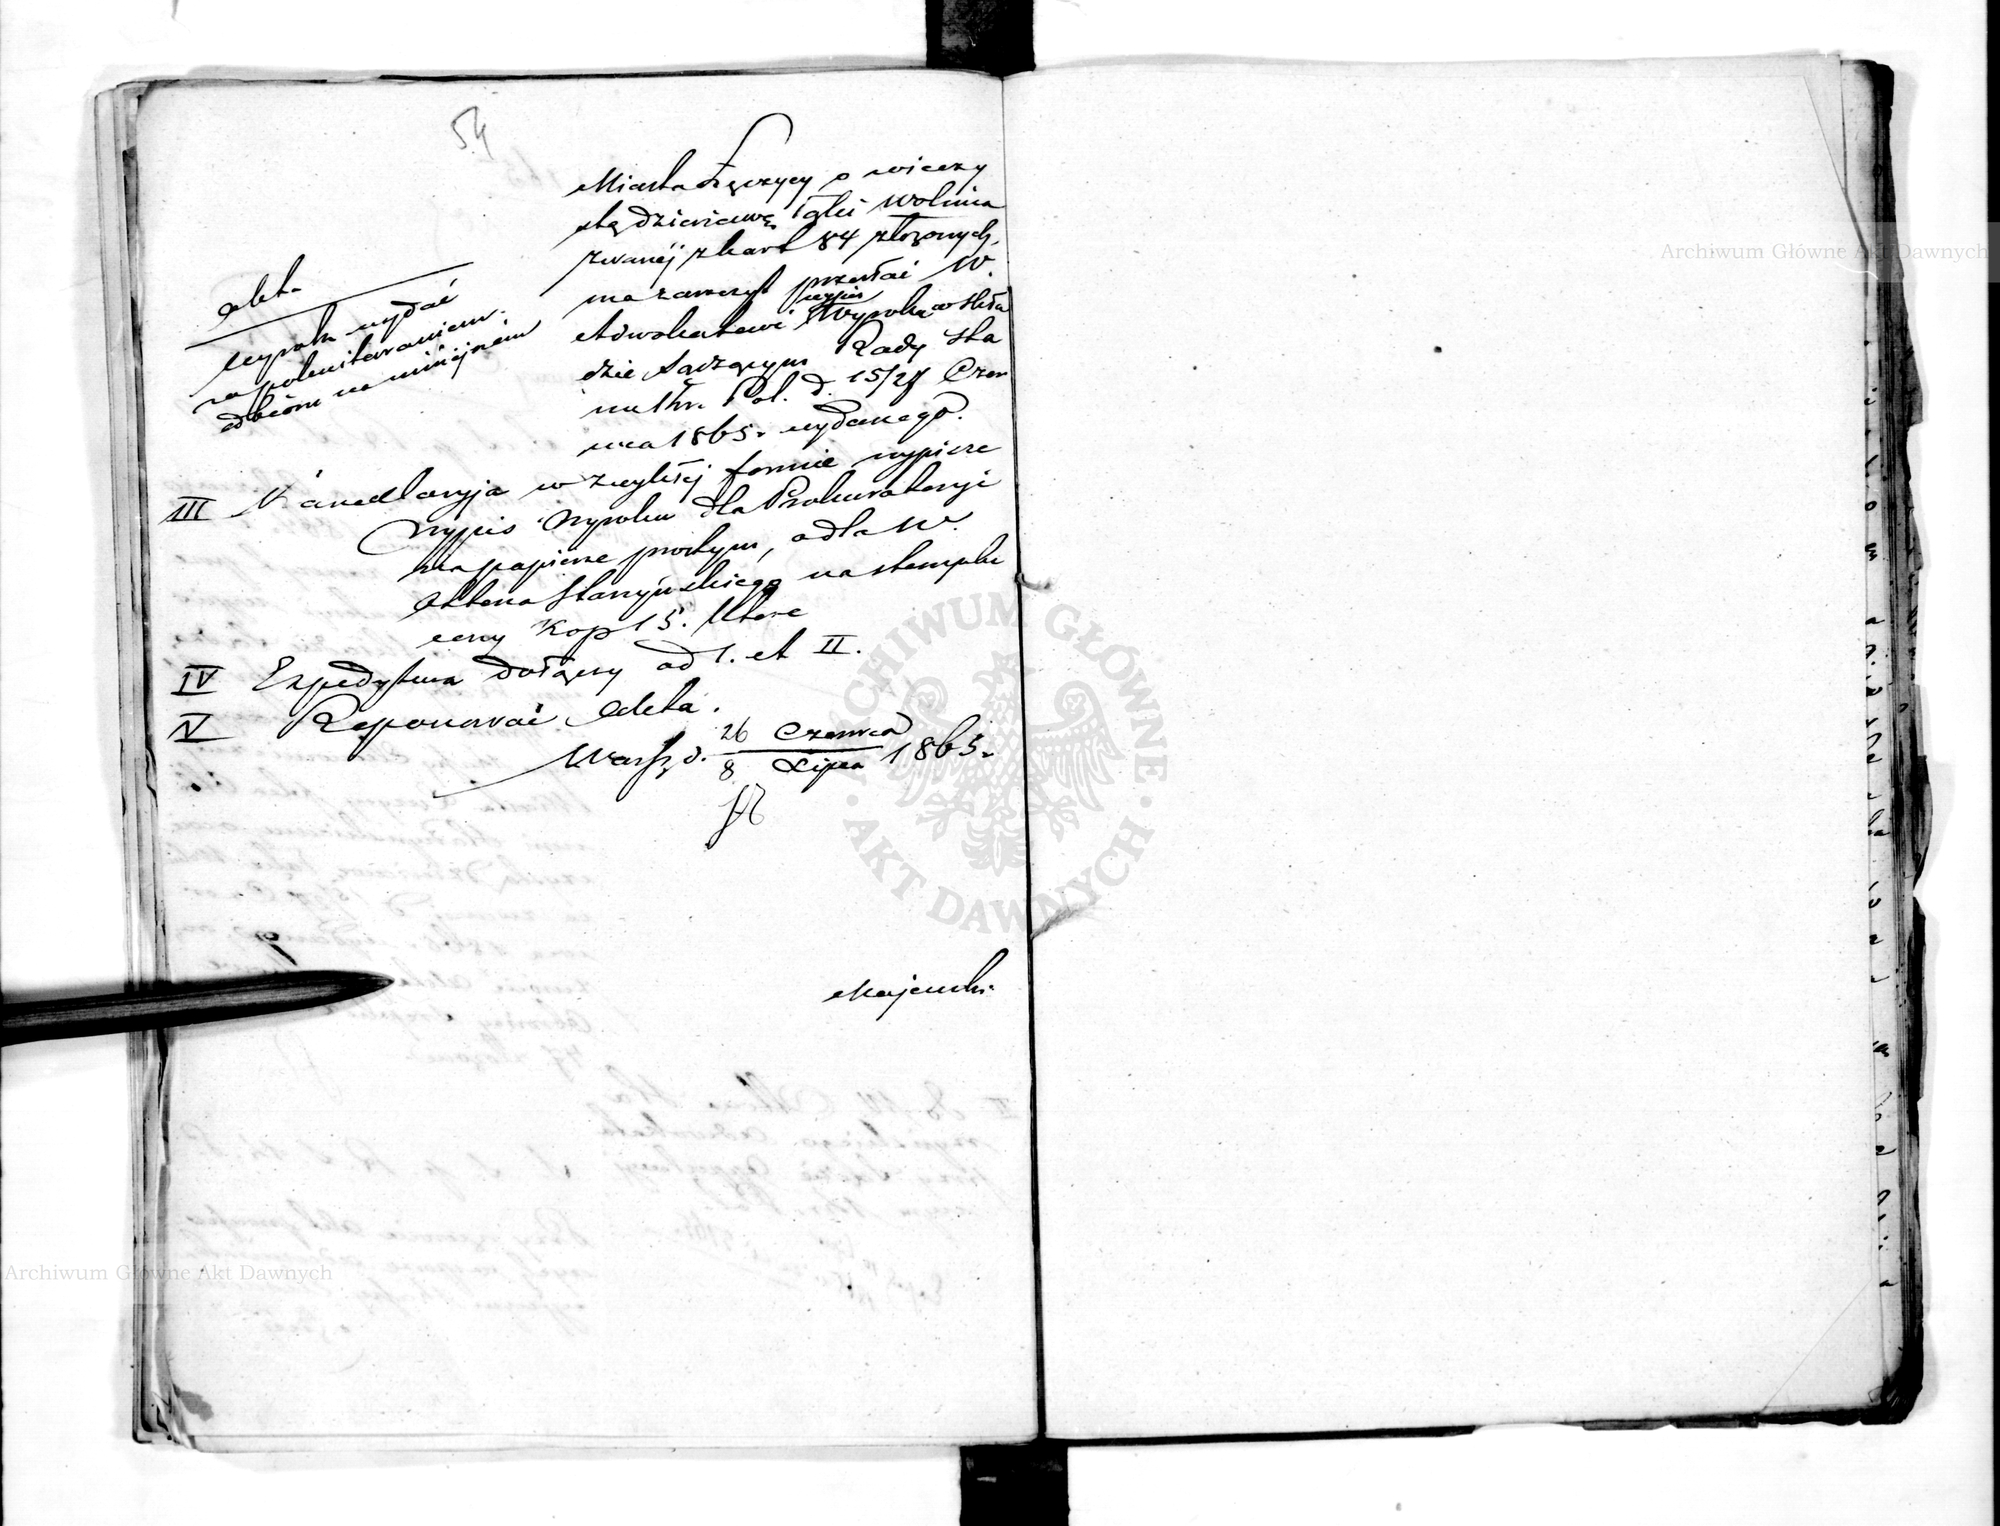 54
Miasta Łęczycy o wieczy
stą dzierżawę Łąki Wolnica
zwanej z kart 84 złożonych,
ma zaszczyt przesłać W.
Adwokatowi wypis Wyroku w Skła
dzie Sądzącym Rady Sta
nu Kr. Pol. d. 15/27 Czer
wca 1865 r. wydanego.
Akta
Wyrok wydać
za pokwitowaniem
odbioru na niniejszem
III Kancellaryja w zwykłej formie wypisze
wypis Wyroku dla Prokuratoryi
na papierze prostym, a dla W.
Ottona Starzyńskiego na stemplu
ceny Kop 15. które
IV Expedytura dołączy ad I. et II.
V Reponować Akta.
Warsz. d. 26 Czerwca / 8 Lipca 1865 r.
Majewski
Archiwum Główne Akt Dawnych
Archiwum Główne Akt Dawnych
ARCHIWUM GŁÓWNE · AKT DAWNYCH ·